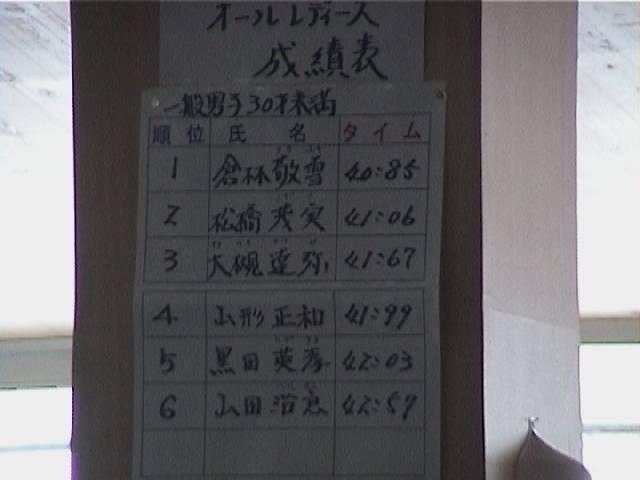 オールレディース
成績表
一般男子30才未満
順位 氏名 タイム
1 倉林敬雪 40:85
2 松橋茂実 41:06
3 大槻達弥 41:67
4 山形正和 41:99
5 黒田英孝 42:03
6 山田 42:59